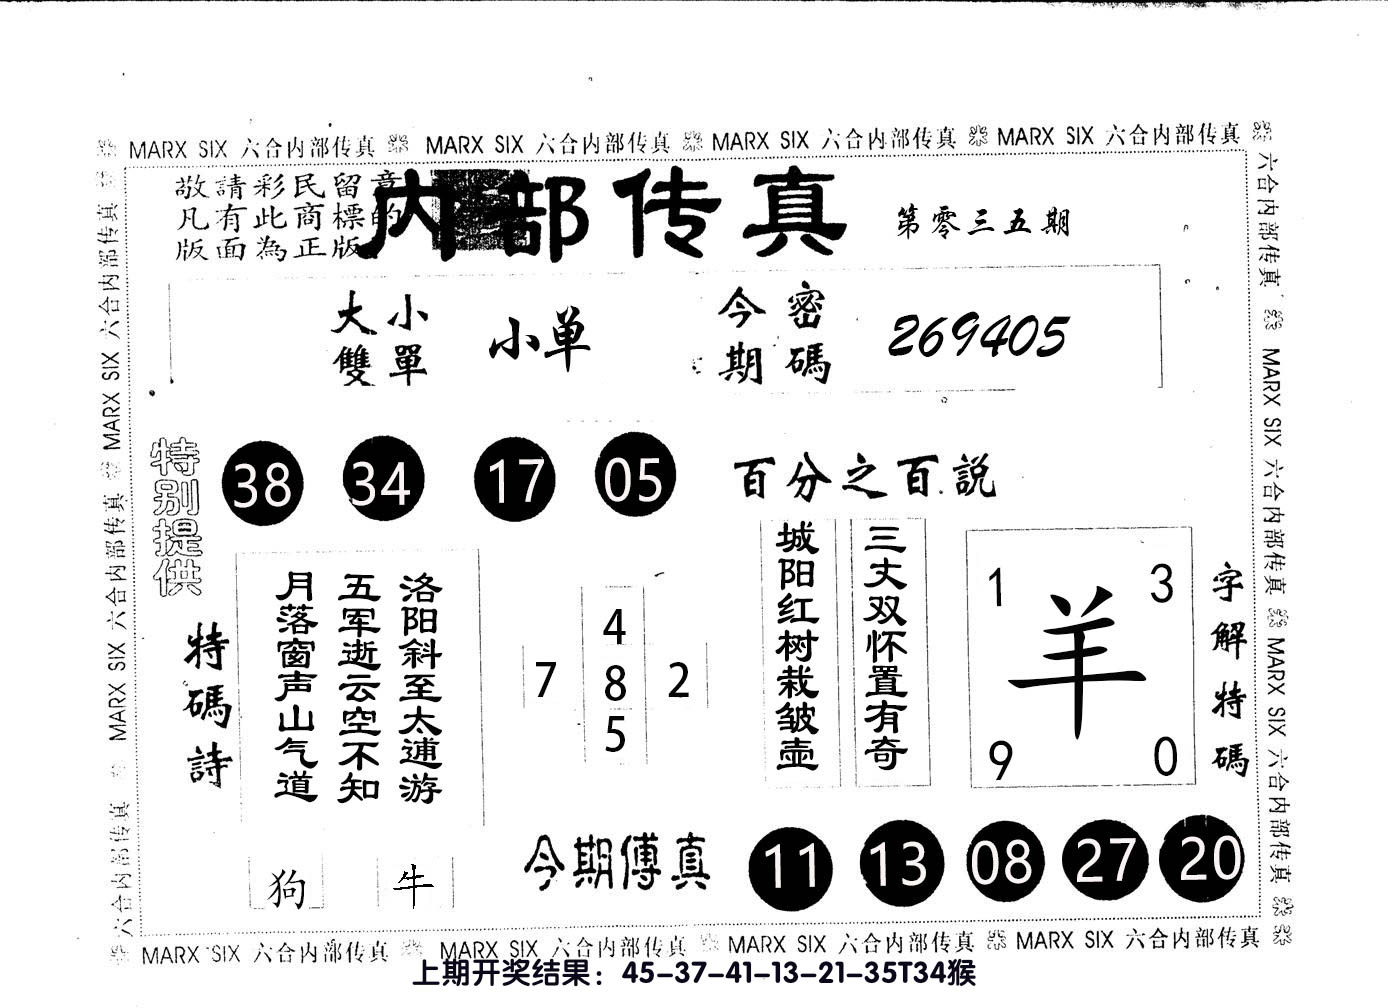 MARX SIX 六合内部传真 MARX SIX 六合内部传真 MARX SIX 六合内部传真 MARX SIX 六合内部传真
敬請彩民留意
凡有此商標的
版面為正版
内部传真
第零三五期
大小
雙單
小单
今密
期碼
269405
特别提供
38 34 17 05
百分之百說
特碼詩
洛阳斜至太逋游
五军逝云空不知
月落窗声山气道
4
7 8 2
5
三丈双怀置有奇
城阳红树栽皱壶
1 3
羊
9 0
字解特碼
狗 牛
今期傳真
11 13 08 27 20
六合内部传真 MARX SIX 六合内部传真 MARX SIX 六合内部传真
六合内部传真 MARX SIX 六合内部传真 MARX SIX 六合内部传真
MARX SIX 六合内部传真 MARX SIX 六合内部传真 MARX SIX 六合内部传真 MARX SIX 六合内部传真
上期开奖结果：45-37-41-13-21-35T34猴